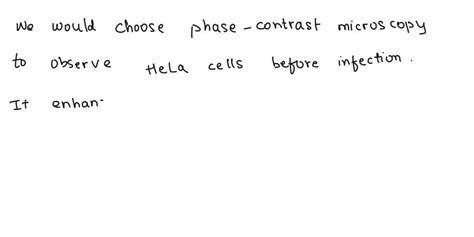 We would choose phase-contrast microscopy
to observe HeLa cells before infection.
It enhan-